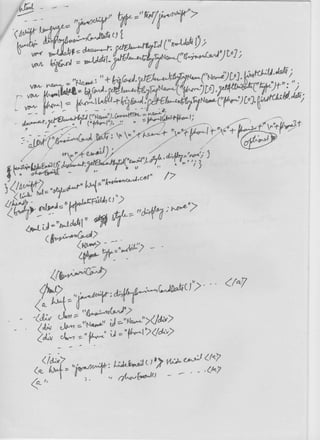 <html> ---
<script language="javascript" type="text/javascript">
function displayBusinessCardDate() {
var xmldate = document.getElementById("xmldate");
var bizCard = xmldate.getElementsByTagName("BusinessCard")[0];
var name = "Name: " + bizCard.getElementsByTagName("Name")[0].firstChild.data;
var phone1Label = bizCard.getElementsByTagName("phone")[0].getAttribute("type") + ": ";
var phone1 = phone1Label + bizCard.getElementsByTagName("phone")[0].firstChild.data;
document.getElementById("Name").innerHTML = name;
" ("phone1"). " = phone1;
alert("Business Card Date: \n \n" + name + "\n" + phone1 + "\n" + phone2 + "\n" + phone3 +
"\n" + email);
optional
hideEmail() { document.getElementById("email").style.display = 'none'; }
showEmail
} </script>
<link rel="stylesheet" href="businesscard.css" />
</head>
<body onload="populateFields()">
<xml id="xmldate" style="display: none">
<BusinessCard>
<Name> - - -
<phone type="mobile"> - -
</BusinessCard>
</xml>
<a href="javascript: displayBusinessCardDate()"> - - - </a>
<div class="BusinessCard">
<div class="Name" id="Name"></div>
<div class="phone" id="phone1"></div>
</div>
<a href="javascript: hideEmail()"> Hide email </a>
<a " " showEmail - - - - </a>